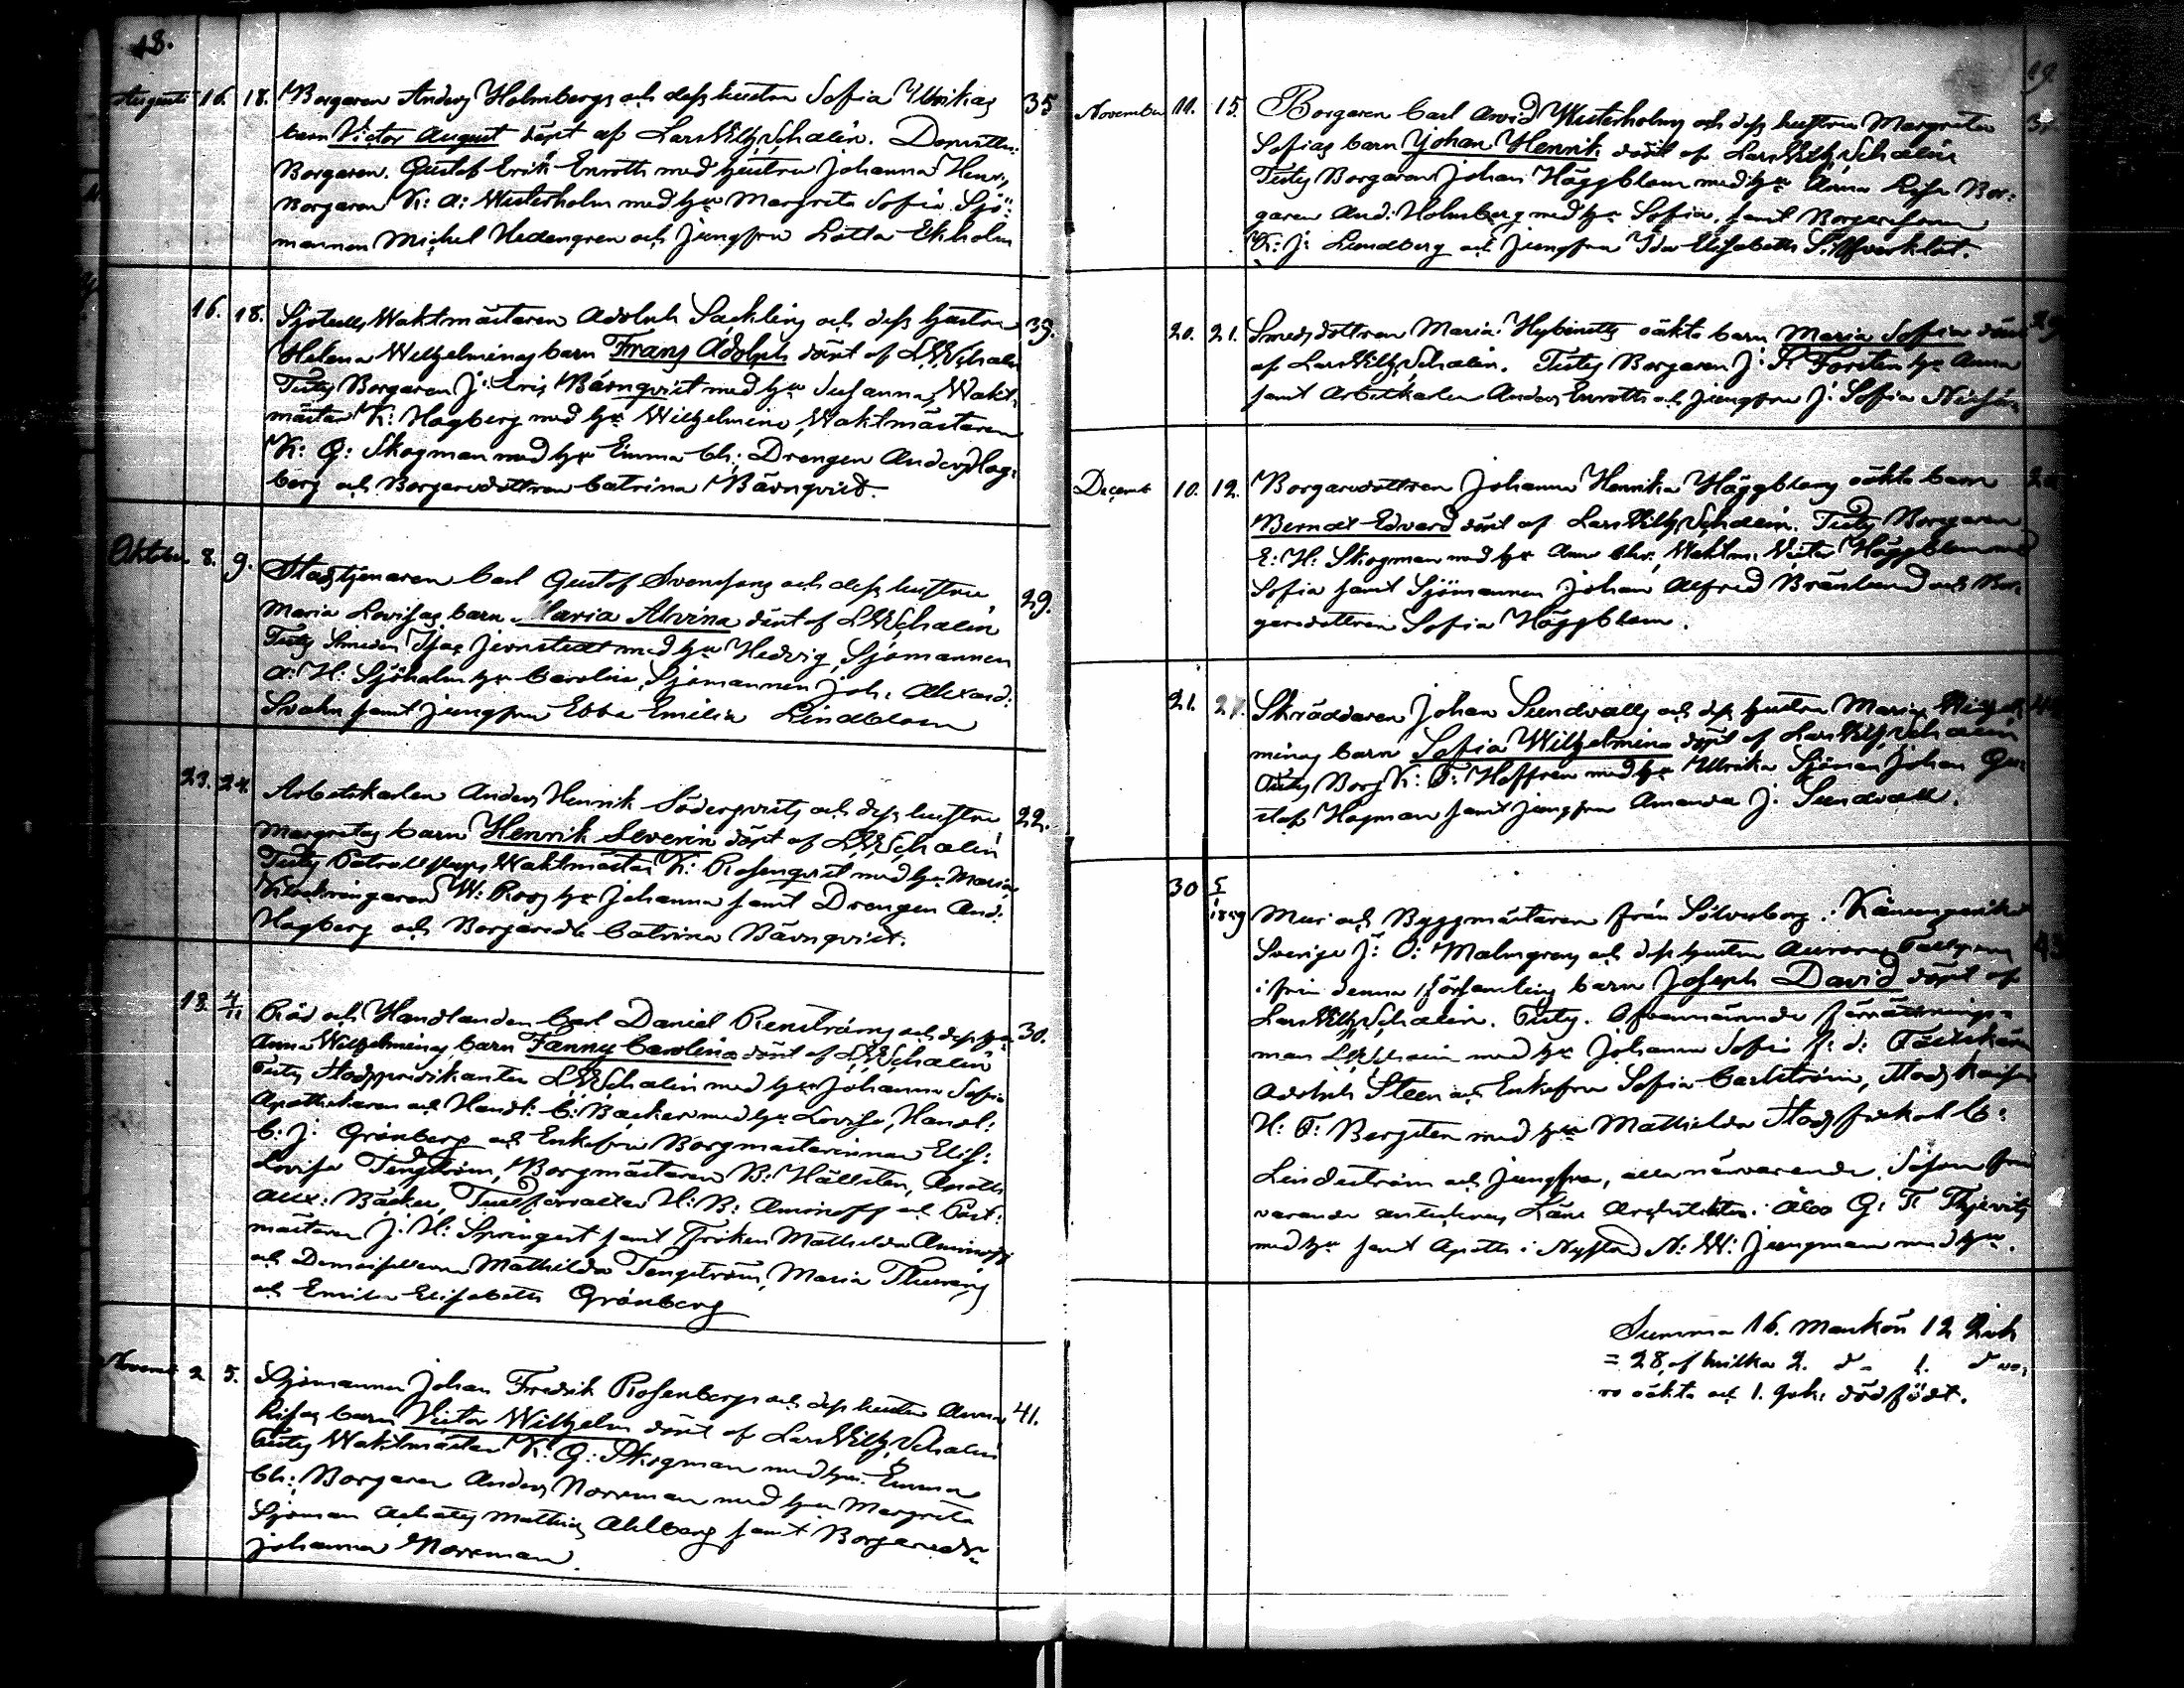 18.
Augusti 16. 18. Borgaren Anders Holmbergs och dess hustru Sofia Ulrikas 35
barn Victor August döpt af Lars Wilh. Schalin. Domvittn:
Borgaren Gustaf Erik Enroth med hustru Johanna Henr,
Borgaren K: A: Westerholm med hu Margreta Sofia Sjö:
mannen Michel Hedengren och Jungfru Lotta Ekholm
16. 18. Sjötulls Waktmästaren Adolph Sackling och dess hustru 39.
Helena Wilhelminas barn Frans Adolph döpt af L.W.Schalin
Testes Borgaren J: Eric Bärnqvist med hu Susanna, Wakt-
mästar K: Hagberg med hu Wilhelmina, Waktmästaren
K: G: Skogman med hu Emma Ch: Drengen Anders Hag-
berg och Borgaredottren Catrina Bärnqvist.
Oktober 8. 9. Stadstjenaren Carl Gustaf Svenssons och dess hustru 29.
Maria Lovisas barn Maria Alvina döpt af L.W.Schalin
Testes Smeden Isac Jernstedt med hu Hedvig, Sjömannen
A: H: Sjöholm hu Carolina, Sjömannen Joh: Alexand:
Svahn samt Jungfru Ebba Emilia Lindblom
23. 24. Arbetskarlen Anders Henrik Söderqvists och dess hustru 22.
Margretas barn Henrik Severin döpt af L.W.Schalin
Testes Waktmästar K: Rosenqvist med hu Maria,
Klockringaren W: Roos hu Johanna samt Drengen And:
Hagberg och Borgaredtr Catrina Bärnqvist.
18. 4/11 Råd och Handlanden Carl Daniel Renströms och dess hu 30.
Anna Wilhelminas barn Fanny Carolina döpt af L.W.Schalin
Testes Stadspredikanten L.W.Schalin med hu Johanna Sofia
Apothekaren och Handl: C: Backer med hu Lovisa, Handl:
C: J: Grönberg och Enkefru Borgmästarinnan Elis:
Lovisa Tengström, Borgmästaren B: Hällsten, Apoth
Alex: Bäcker, Tullförvalter H: B: Aminoff och Post:
mästaren J: H: Springert samt Fröken Mathilda Aminoff
och Demoisellerna Mathilda Tengström, Maria Thuring
och Emilia Elisabeth Grönberg
Novemb 2 5. Sjömannen Johan Fredrik Rosenbergs och dess hustru Anna 41.
Lisas barn Victor Wilhelm döpt af Lars Wilh. Schalin
Testes Waktmästar K: G: Skogman med hu. Emma
Ch: Borgaren Anders Norrman med hu Margreta
Sjöman Mathias Ahlberg samt Borgaredtr
Johanna Norrman.
19
November 11. 15. Borgaren Carl Arvid Westerholms och dess hustru Margreta
Sofias barn Johan Henrik döpt af Lars Wilh. Schalin
Testes Borgaren Johan Häggblom med hu Anna Lisa Bor-
garen And: Holmberg med hu Sofia, samt Borgaresonen
K: J: Lundberg och Jungfru Ida Elisabeth Silfverklot.
20. 21. Smedsdottren Maria Hybinetts oäkta barn Maria Sofia döpt 29
af Lars Wilh. Schalin. Testes Borgaren J: F. Forstén hu Anna
samt Arbetskarlen Anders Enroth och Jungfru J: Sofia
Decemb 10. 12. Borgaredottren Johanna Henrika Häggbloms oäkta barn
Berndt Edvard döpt af Lars Wilh. Schalin. Testes Borgaren
E: H: Skogman med hu Anna Chr., Waktm: Victor Häggblom med
Sofia samt Sjömannen Johan Alfred Bränlund och Bor-
garedottren Sofia Häggblom.
21. 27. Skräddaren Johan Sundvalls och dess hustru Maria Wilhel
minas barn Sofia Wilhelmina döpt af Lars Wilh. Schalin
Testes Borg K: F: Hoffrén med hu Ulrika Sjöman Johan Gu-
staf Hagman samt Jungfru Amanda J. Sundvall.
30 5/1 1859 Mur och Byggmästaren från Sölvesborg i Konungariket
Sverige J: O: Malmgrens och dess hustru Aurora
ifrån denna församling barn Joseph David döpt af 43
Lars Wilh. Schalin. Testes. Ofvannämnde förrättnings-
man L.W.Schalin med hu Johanna Sofia f: d:
Adolph Steen och Enkefru Sofia Carlström, Stads
H: F: Bergsten med hu Mathilda Stadsfiskal C:
Lindström och Jungfru, alla närvarande. Såsom från
varande antecknas Läns Architekten i Åbo G: T.
med hu samt Apoth i Nystad N: W: Jungman med hu.
Summa 16. Mankön 12 Qvk
= 28, af hvilka 2. d- 1. d vo-
ro oäkta och 1. Qvk: dödfödt.